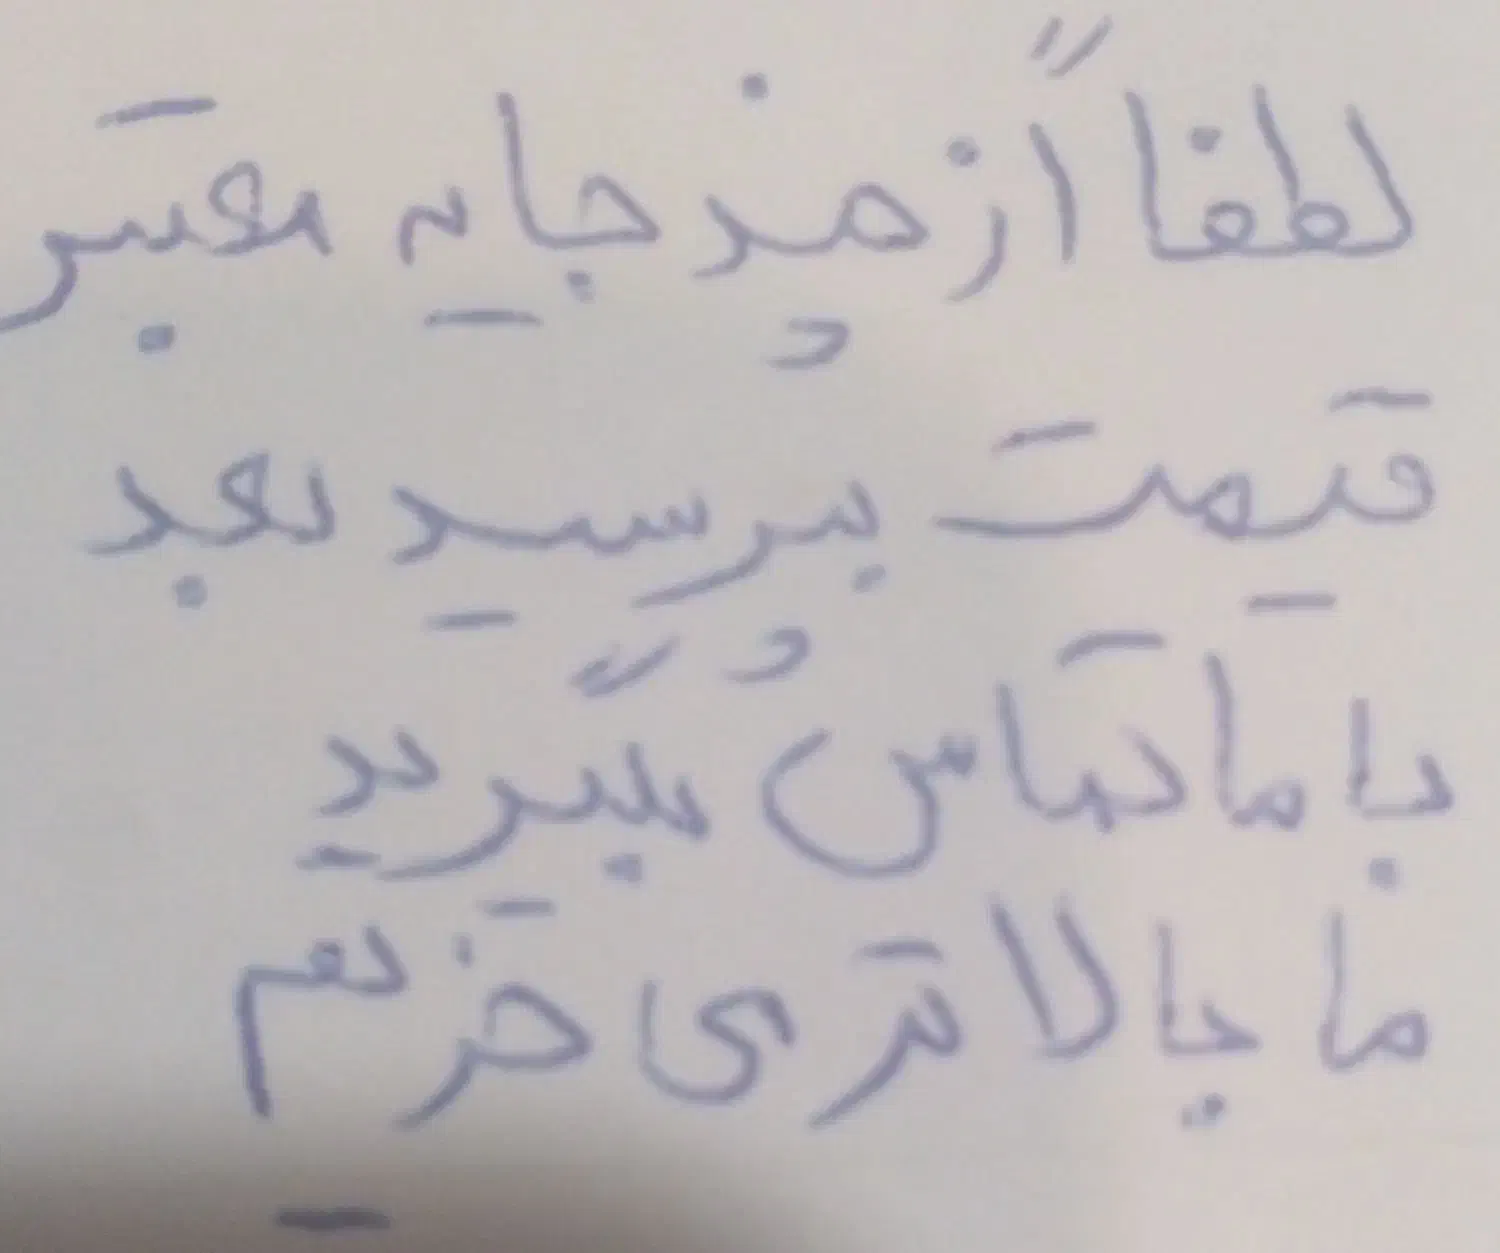 لطفاً از چند جایه معتبر
قیمت بپرسید بعد
با ما تماس بگیرید
ما بالاتری خریم